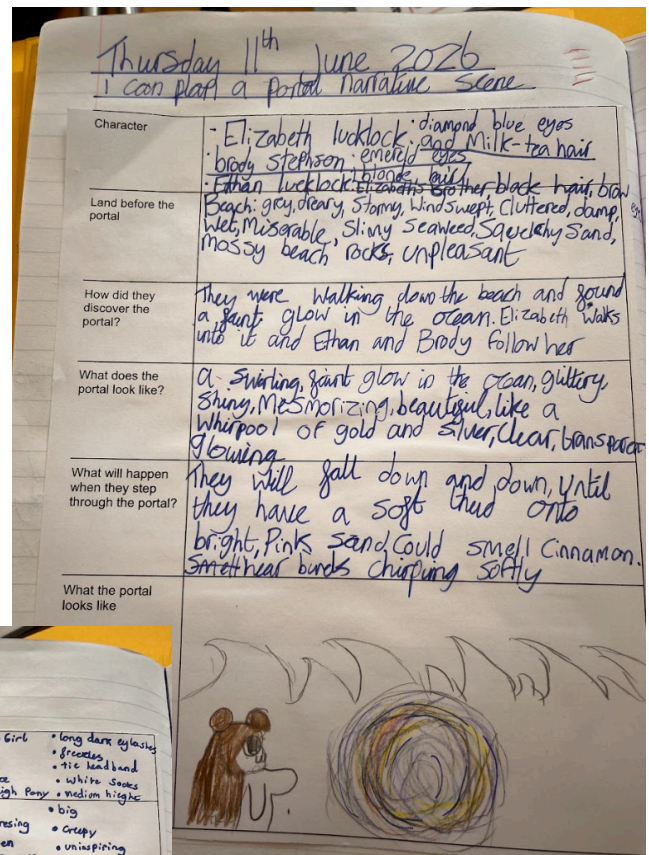 Thursday 11th June 2026
I can plan a portal narrative scene
Character
· Elizabeth lucklock · diamond blue eyes
and Milk-tea hair
· brody Stephson · emereld eyes
blonde hair
· Ethan lucklock: Elizabeths brother black hair, brow
eyes
Land before the
portal
Beach: grey, dreary, Stormy, Windswept, Cluttered, damp,
Wet, Miserable, Slimy Seaweed, Squelchy Sand,
mossy beach rocks, unpleasant
How did they
discover the
portal?
They were Walking down the beach and found
a faint glow in the ocean. Elizabeth Walks
into it and Ethan and Brody follow her
What does the
portal look like?
a Swirling, faint glow in the ocean, glittery,
Shiny, Mesmorizing, beautiful, like a
Whirpool of gold and silver, Clear, transparent
glowing
What will happen
when they step
through the portal?
They will fall down and down, until
they have a soft thud onto
bright, Pinks Sand Could smell Cinnamon.
Smell hear burds chirping Softly
What the portal
looks like
Girl
• long dark eylashes
• freckles
• tie headband
• White Socks
high Pony • mediom hieght
• big
• Creepy
• uninspiring